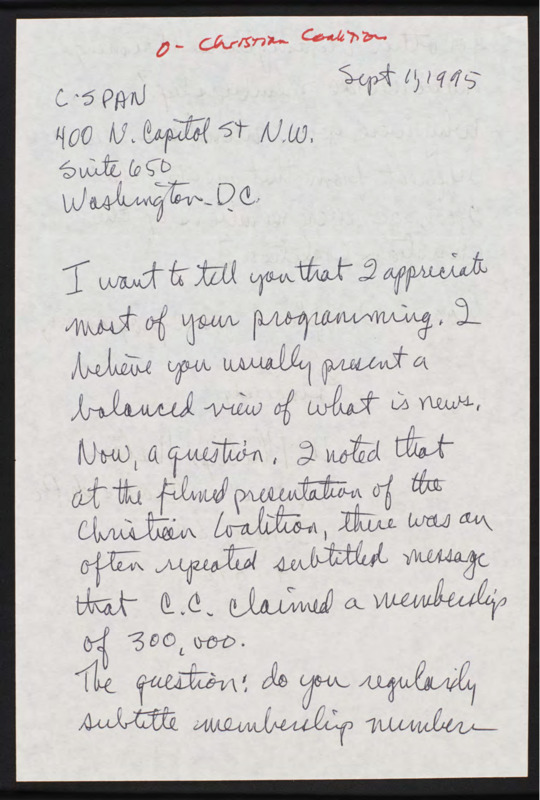 O- Christian Coalition
Sept 11, 1995
C-SPAN
400 N. Capitol St N.W.
Suite 650
Washington D.C.
I want to tell you that I appreciate
most of your programming. I
believe you usually present a
balanced view of what is news.
Now, a question. I noted that
at the filmed presentation of the
Christian Coalition, there was an
often repeated subtitled message
that C.C. claimed a membership
of 300,000.
The question: do you regularly
subtitle membership numbers